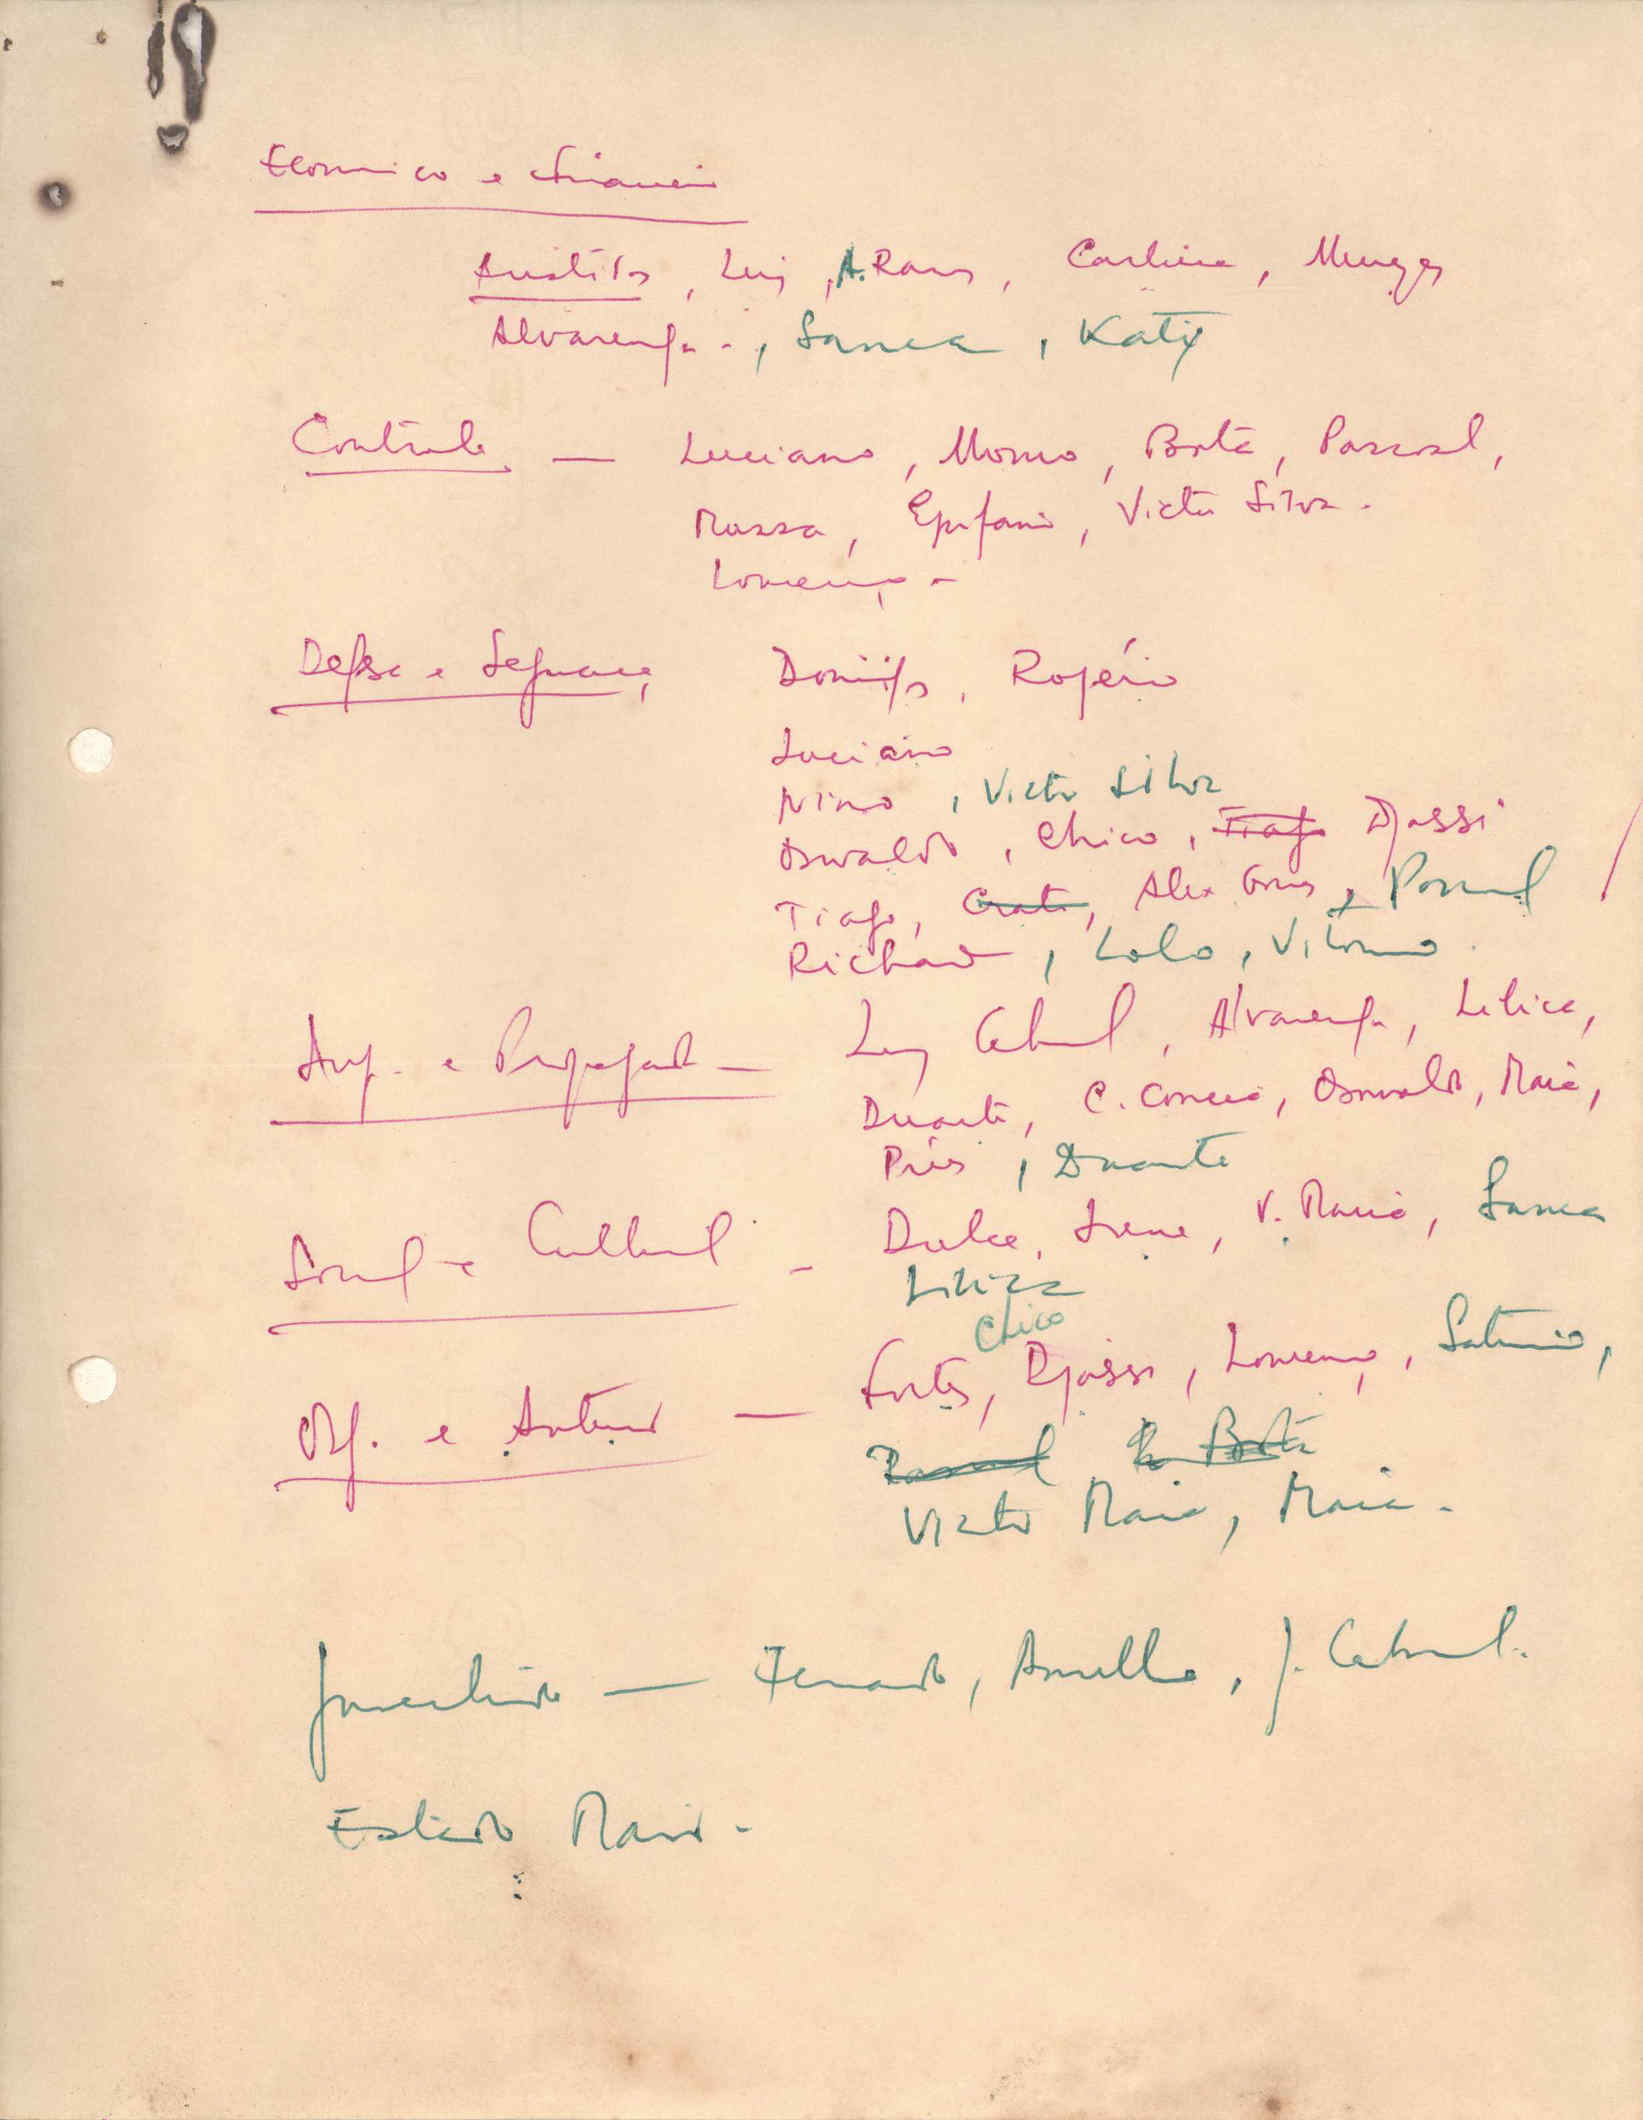 Economico e Financeiro
Aristides, Luiz, A. Ramos, Carlina, Menezes
Alvarenga -, Sanca, Katy
Controle — Luciano, Momo, Bota, Pascoal,
Mussa, Epifanio, Victor Silva.
Lourenço -
Defesa e Segurança Domingos, Rogério
Luciano
Nino, Victor Silva
Osvaldo, Chico, Tiago Djassi
Tiago, Alex Gomes, Pascoal
Richard, Lolo, Vitorino.
Inf. e Propaganda — Luiz Cabral, Alvarenga, Lilica,
Duarte, C. Correia, Osvaldo, Maria,
Pires, Duarte
Social e Cultural - Dulce, Irene, V. Maria, Sanca
Lilica
Chico
Org. e Fortes, Djassi, Lourenço, Saturnino,
Pascoal Bota
Victor Maria, Maria.
Juventude — Fernando, Armello, J. Cabral.
Estado Maior.